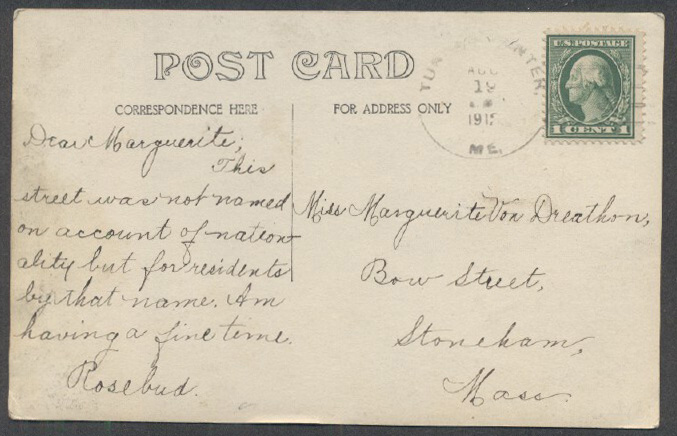 POST CARD
CORRESPONDENCE HERE
FOR ADDRESS ONLY
AUG
19
ME.
U.S. POSTAGE
1 CENT 1
Dear Marguerite;
This
street was not named
on account of nation-
ality but for residents
by that name. Am
having a fine time.
Rosebud.
Miss Marguerite Von Dreathon,
Bow Street,
Stoneham,
Mass.